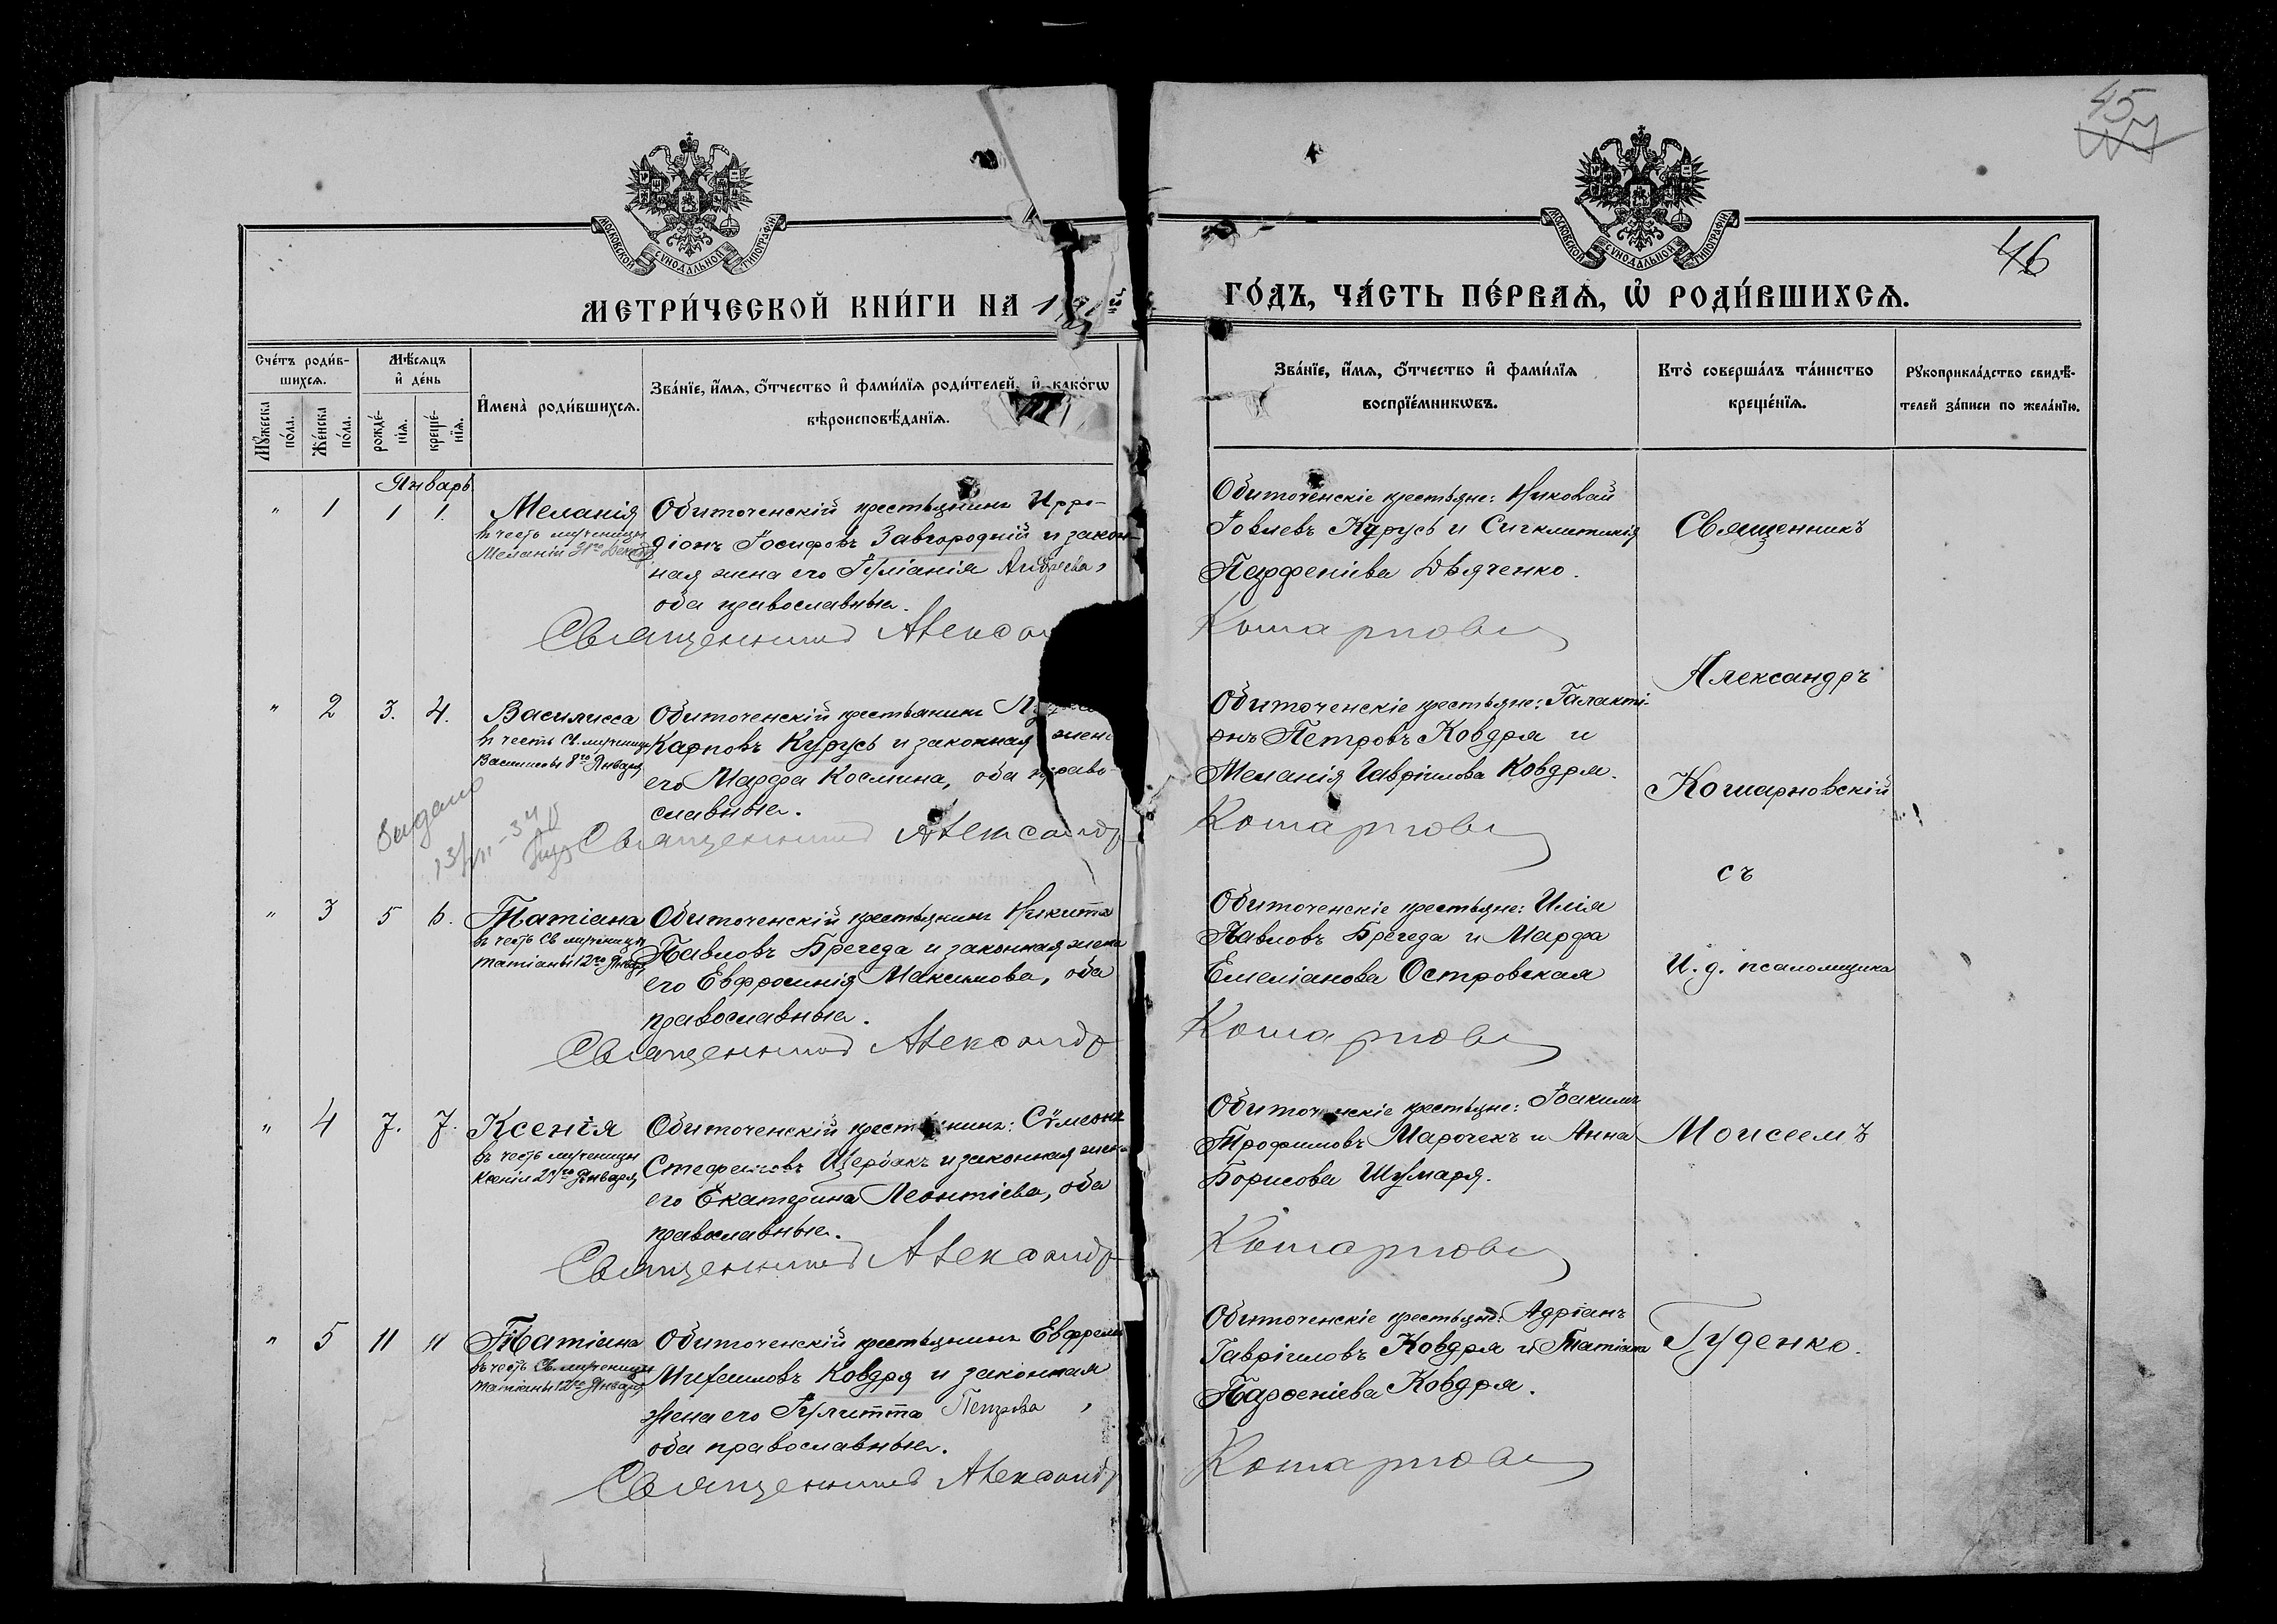 45
46
МОСКОВСКОЙ СѴНОДАЛЬНОЙ ТИПОГРАФІИ
МОСКОВСКОЙ СѴНОДАЛЬНОЙ ТИПОГРАФІИ
МЕТРИ́ЧЕСКОЙ КНИ́ГИ НА 19
ГО́ДЪ, ЧА́СТЬ ПЕ́РВАѦ, Ѡ҆ РОДИ́ВШИХСѦ.
Сче́тъ роди́в-
шихсѧ.
Мꙋ́жеска
по́ла.
Же́нска
по́ла.
Мѣ́сѧцъ
и҆ де́нь
рожде́-
нїѧ.
креще́-
нїѧ.
И҆мена̀ роди́вшихсѧ.
Зва́нїе, и҆́мѧ, ѻ҆́тчество и҆ фами́лїѧ роди́телей, и҆ како́гѡ
вѣроисповѣ́данїѧ.
Зва́нїе, и҆́мѧ, ѻ҆́тчество и҆ фами́лїѧ
воспрїе́мникѡвъ.
Кто̀ соверша́лъ та́инство
креще́нїѧ.
Рꙋкоприкла́дство свидѣ́-
телей за́писи по жела́нїю.
Январь
" 1 1 1.
Меланія
въ честь мученицы
Меланіи 31го Декаб.
Обиточенскій крестьянинъ Ирро-
діонъ Іосифовъ Завгородній и закон-
ная жена его Іуліанія Андреева,
оба православные.
Священникъ Александ
Обиточенскіе крестьяне: Николай
Іовлевъ Курусь и Сигклитикія
Парфеніева Дьяченко.
Кошарновск
" 2 3. 4.
Василисса
въ честь Св. мученицы
Василиссы 8го Января
Обиточенскій крестьянинъ
Карповъ Курусь и законная жена
его Марфа Космина, оба право-
славные.
Священникъ Александр
Обиточенскіе крестьяне: Галакті-
онъ Петровъ Ковдря и
Меланія Гавріилова Ковдря.
Кошарновск
Видано
13/VII-34
" 3 5 6.
Татіана
въ честь Св. мученицы
Татіаны 12го Января
Обиточенскій крестьянинъ Никита
Павловъ Брегеда и законная жена
его Евфросинія Максимова, оба
православные.
Священникъ Александр
Обиточенскіе крестьяне: Илія
Павловъ Брегеда и Марфа
Емеліанова Островская
Кошарновск
" 4 7. 7.
Ксенія
въ честь мученицы
Ксеніи 24го Января
Обиточенскій крестьянинъ: Сѵмеонъ
Стефановъ Щербакъ и законная жен
его Екатерина Леонтіева, оба
православные.
Священникъ Александр
Обиточенскіе крестьяне: Іоакимъ
Трофимовъ Марочекъ и Анна
Борисова Шумаря.
Кошарновск
" 5 11 11
Татіана
въ честь Св. мученицы
Татіаны 12го Января
Обиточенскій крестьянинъ Евфремъ
Михаиловъ Ковдря и законная
жена его Іулитта Петрова,
оба православные.
Священникъ Александр
Обиточенскіе крестьяне: Адріанъ
Гавріиловъ Ковдря и Татіана
Парѳеніева Ковдря.
Кошарновск
Священникъ
Александръ
Кошарновскій
съ
И. д. псаломщика
Моисеемъ
Гуденко.